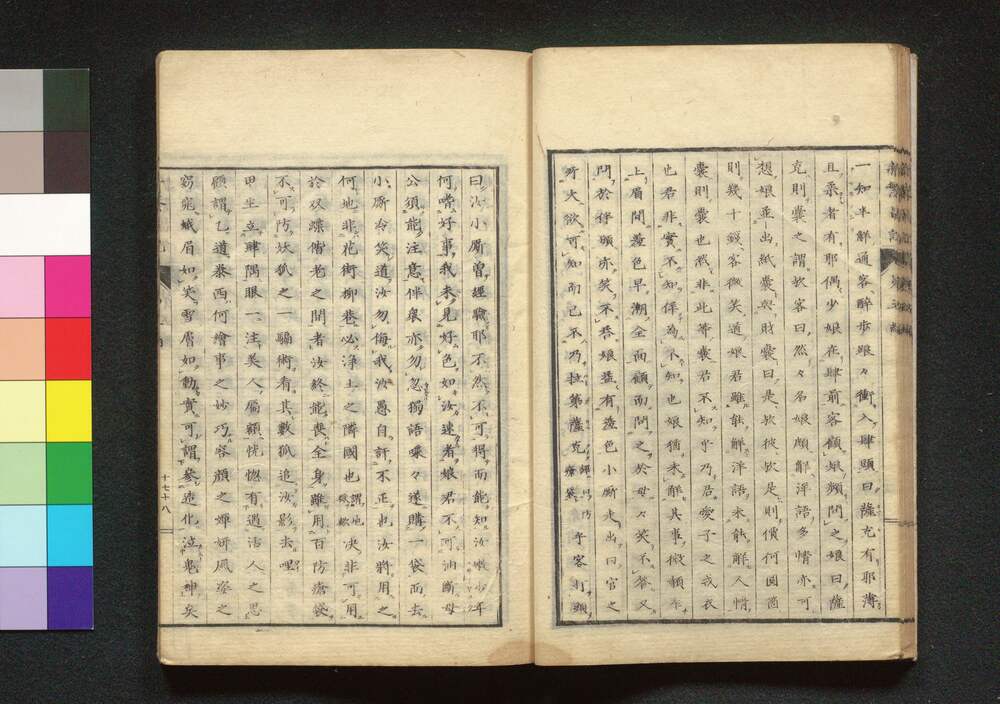 一知半解通客醉步踉々衝入肆頭曰薩克有耶薄
且柔者有耶偶少娘在肆前客顧娘頻問之娘曰薩
克則囊之謂歟客曰然々名娘頗解洋語多情亦可
想娘並出紙囊與財囊曰是歟彼歟是則價何圓箇
則幾十錢客微笑道娘君雖能解洋語未能解人情
囊則囊也然非此等囊君不知乎乃居愛子之戎衣
也君非實不知佯為不知也娘猶未解其事微頼
上眉間羞色早潮全面顧而問之於母々笑不答又
問於伴頭亦笑不答娘益有羞色小厮走出曰官之
所大欲可知而已不乃拉第薩克乎客打頭
曰汝小厮曾經驗耶不然不可得而能知汝嫩少年
何嗜好事我未見好色如汝速者娘君不可油斷母
公須能注意伴衆亦勿忽獨語喋々遂購一袋而去
小厮冷笑道汝勿侮我汝愚自許不正也汝將用之
何地非花街柳巷必淨土之隣國也决非可用
於双雙偕老之間者汝終能喪全身雖用百防瘡袋
不可防妖狐之一騙術看其數狐追汝影去哩
甲坐立肆隅眼一注美人屬顧恍惚有遇活人之思
顧謂乙道泰西何繪事之妙巧容顏之嬋妍風姿之
窈窕娥眉如笑雪唇如動實可謂參造化泣鬼神矣
十七十八